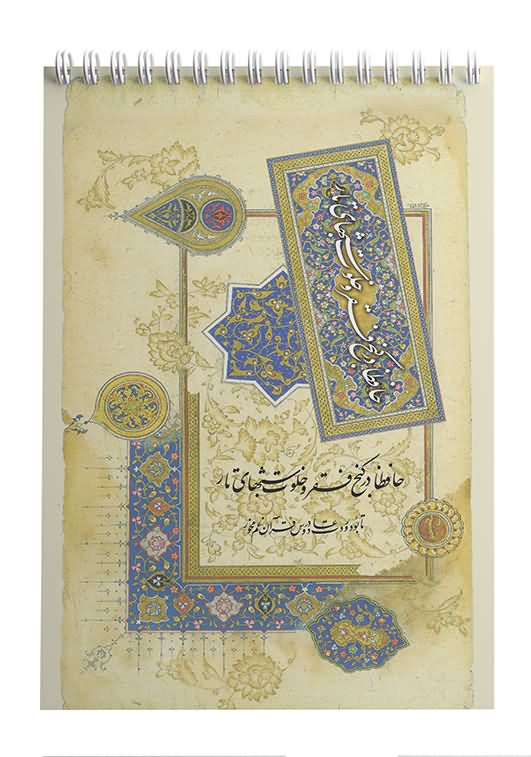 حافظا در کنج فقر و خلوت شبهای تار
حافظا در کنج فقر و خلوت شبهای تار
تا بود وردت دعا و درس قرآن غم مخور